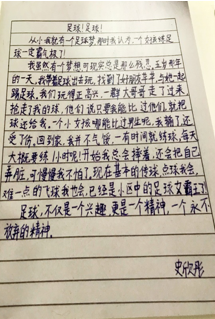 足球！足球！
从小我就有一个足球梦，那时我认为，一个女孩踢足
球一定霸气极了！
我虽然有个梦，可现实总是那么残忍。五年前
的一天，我带着足球出去玩，找到了好朋友，与他一起
踢足球，我们玩得正高兴，一群大哥哥走了过来
抢走了我的球，他们说只要我能比过他们，就把
球还给我。一个小女孩哪能比过男生呢，我输了还
受了伤，回到家，我并不气馁，一有时间就练球，每天
大概要练1小时呢！开始我总会摔着，还会把自己
弄脏，可慢慢我不怕了，现在基本的传球、点球我会，
难一点的飞球我也会，已经是小区中的足球女霸王了
足球，不仅是一个兴趣，更是一个精神，一个永不
放弃的精神。
史欣彤